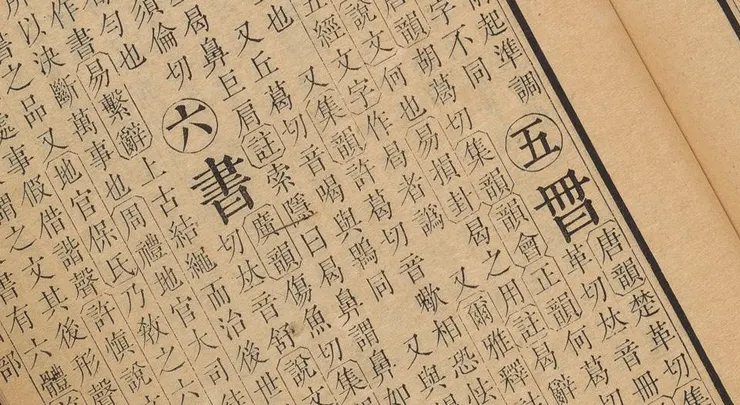 起準調
五
唐韻楚革切集
革切𠀤音冊
字不同
胡葛切集韻韻會正韻何葛
唐韻
說文何也易損卦曷之用註曷
五經文字作曷者譌 又爾雅釋
又集韻許葛切音 相恐怯
也 又丘葛切音喝與鶡同 又與
曷鼻巨肩註索隱曰曷鼻謂鼻如
須倫切
六書
廣韻傷魚切集
切𠀤音舒說文
勻也
作書易繫辭上古結繩而治後世
以決斷萬事也周禮地官大司
之品又地官保氏乃敎之六
事假借諧聲許慎說文
之文其後形聲
書有六體
部